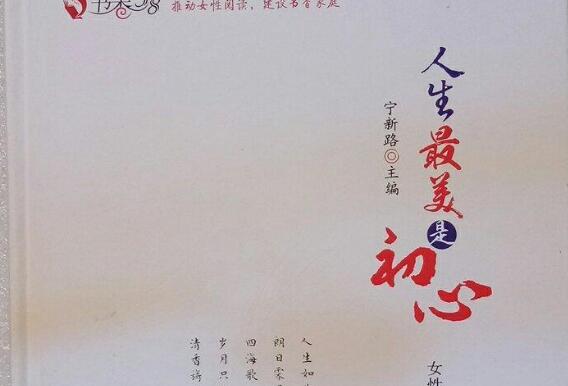 书香38
推动女性阅读，建设书香家庭
人生最美是初心
宁新路◎主编
女性
人生如
明日零
四海歌
岁月只
清香旖